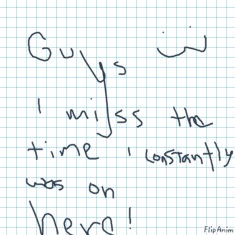 Guys :3
I miss the
time i constantly
was on
here!
FlipAnim